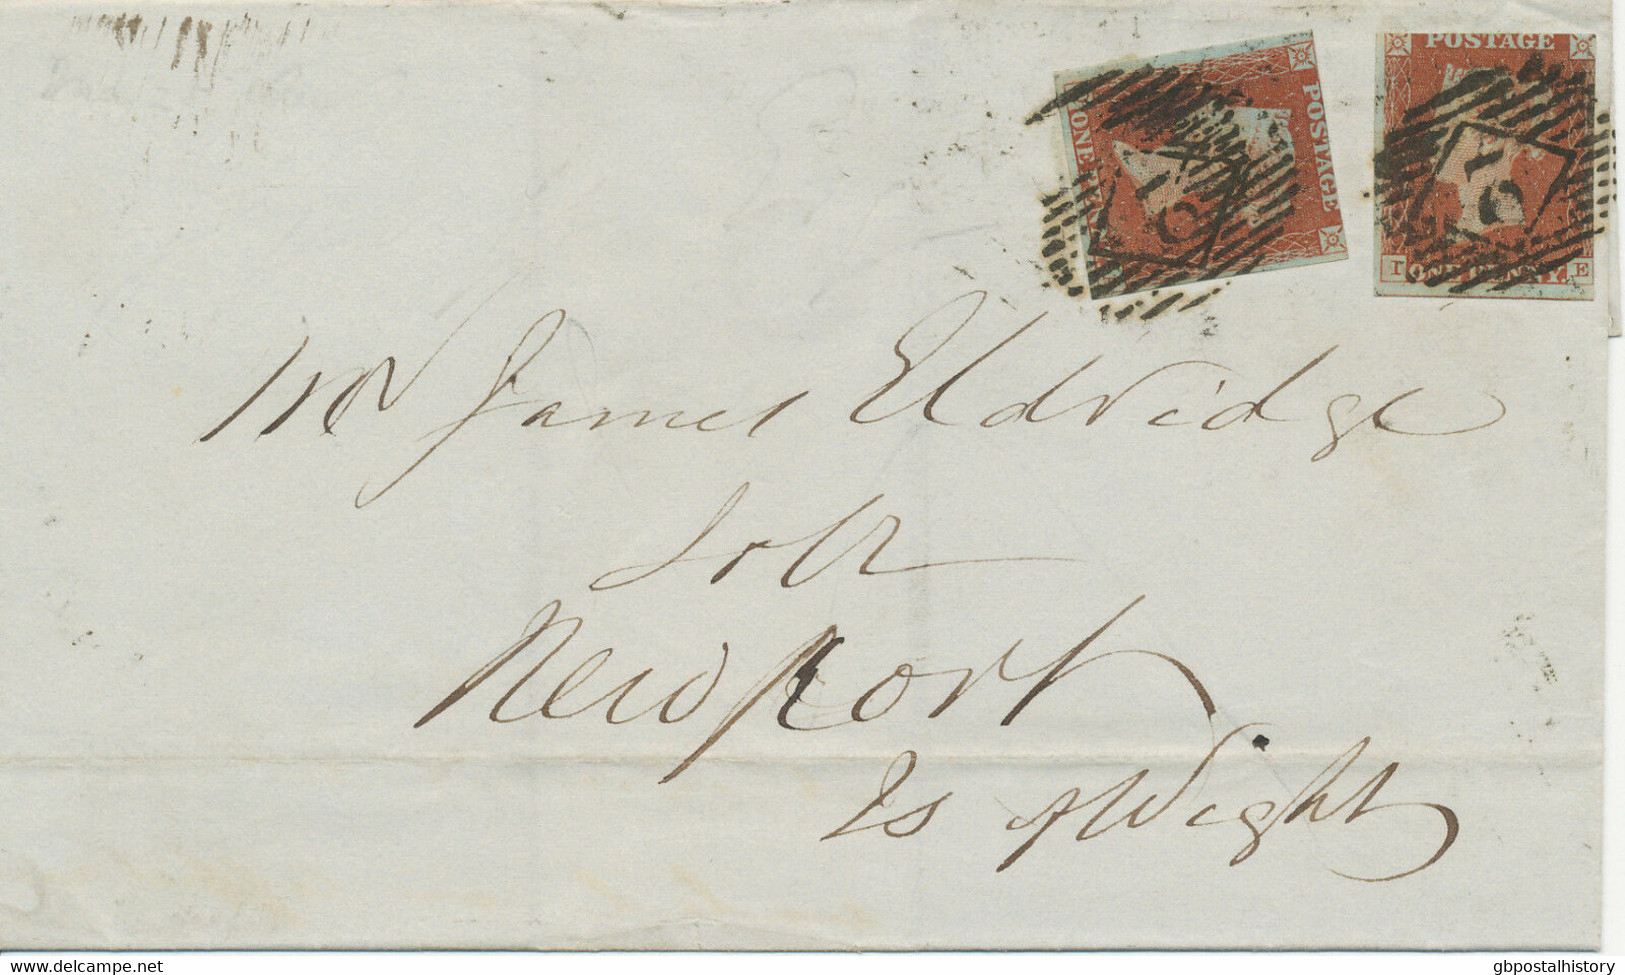 POSTAGE
ONE PE
POSTAGE
ONE PENNY.
I E
Mr James Eldridge
Solr
Newport
Is of Wight
www.delcampe.net
gbpostalhistory